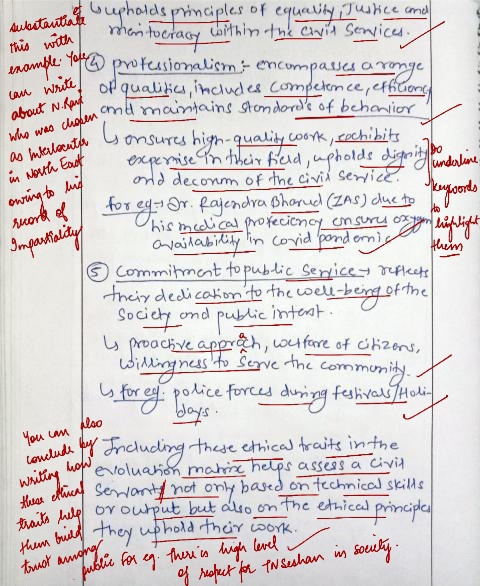 ↳ upholds principles of equality, Justice and
meritocracy within the Civil Services.
④ professionalism :- encompasses a range
of qualities, includes competence, efficiency
and maintains standards of behavior
↳ ensures high-quality work, exhibits
expertise in their field, upholds dignity
and decorum of the civil service.
for eg → Dr. Rajendra Bharud (IAS) due to
his medical proficiency ensures oxygen
availability in covid pandemic
⑤ Commitment to public service → reflects
their dedication to the well-being of the
society and public interest.
↳ proactive approach, welfare of citizens,
willingness to serve the community.
↳ for eg. police forces during festivals/Holi-
days.
Including these ethical traits in the
evaluation matrix helps assess a civil
servant not only based on technical skills
or output but also on the ethical principles
they uphold their work.
substantiate
this with
example. You
can write
about N. Ravi
who was chosen
as Interlocutor
in North East
owing to his
record of
Impartiality
Do
underline
keywords
to
highlight
them
You can also
conclude by
writing how
these ethical
traits help
them build
trust among
public For eg. There is high level
of respect for TN Seshan in society.